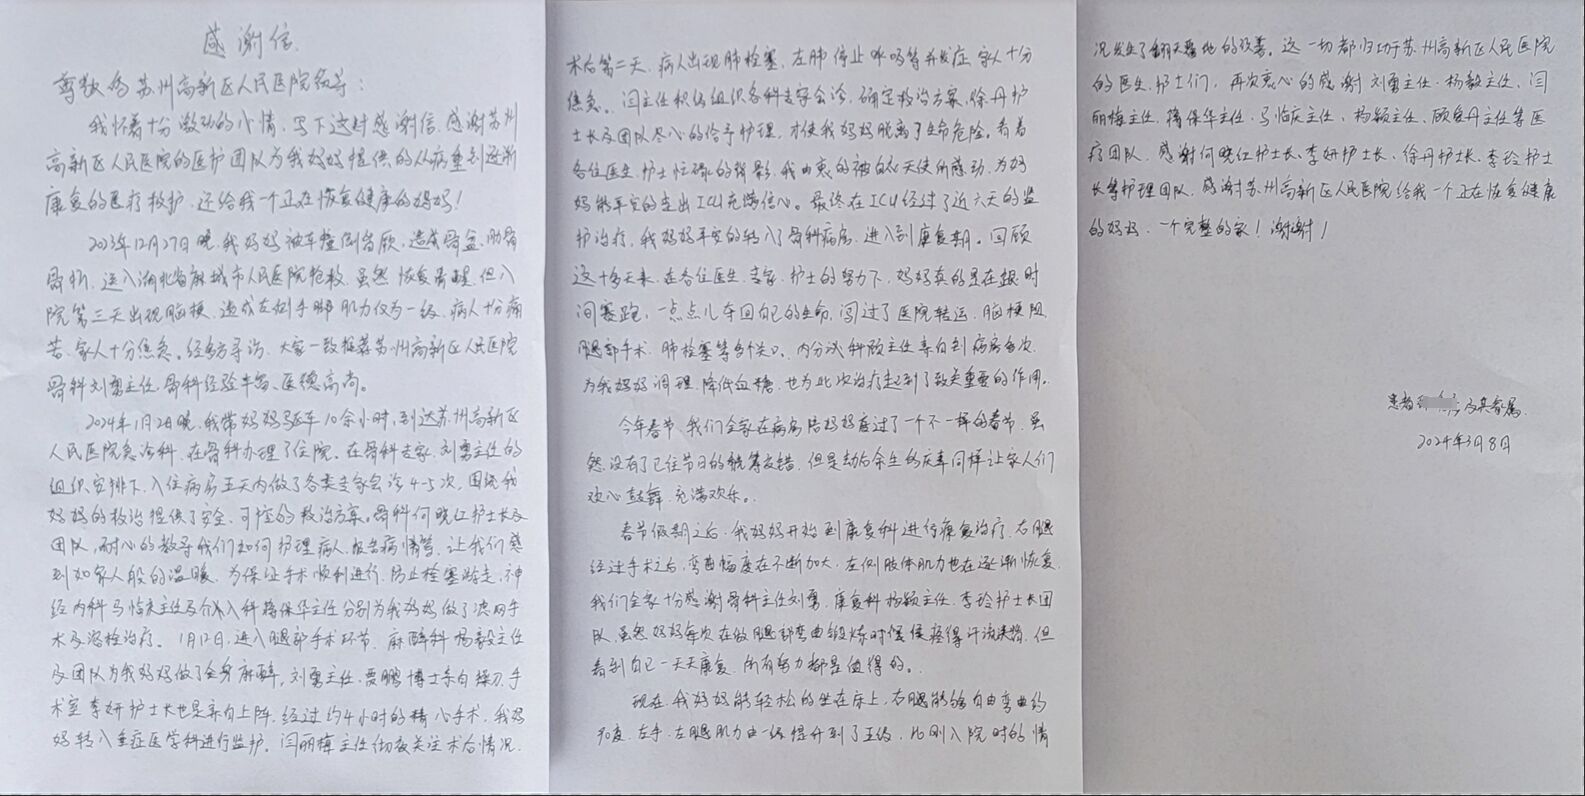 感谢信
尊敬的苏州高新区人民医院领导：
我怀着十分激动的心情，写下这封感谢信，感谢苏州
高新区人民医院的医护团队为我妈妈提供的从病重到逐渐
康复的医疗救护，还给我一个正在恢复健康的妈妈！
2023年12月27日晚，我妈妈被车撞倒昏厥，造成骨盆、肋骨
骨折，送入湖北省麻城市人民医院抢救，虽然恢复清醒，但入
院第三天出现脑梗，造成左侧手脚肌力仅为一级，病人十分痛
苦，家人十分焦急。经多方寻访，大家一致推荐苏州高新区人民医院
骨科刘勇主任，骨科经验丰富、医德高尚。
2024年1月2日晚，我带妈妈驱车10余小时，到达苏州高新区
人民医院急诊科，在骨科办理了住院。在骨科专家刘勇主任的
组织安排下，入住病房五天内做了各类专家会诊4-5次，围绕我
妈妈的救治提供了安全、可控的救治方案。骨科何晓红护士长及
团队，耐心的教导我们如何护理病人，报告病情等，让我们感
到如家人般的温暖。为保证手术顺利进行，防止栓塞游走，神
经内科马临庆主任与介入科蒋保华主任分别为我妈妈做了滤网手
术及溶栓治疗。1月12日，进入腿部手术环节，麻醉科杨毅主任
及团队为我妈妈做了全身麻醉，刘勇主任、贾鹏博士亲自操刀，手
术室李妍护士长也是亲自上阵，经过约4小时的精心手术，我妈
妈转入重症医学科进行监护。闫丽梅主任彻夜关注术后情况，
术后第二天，病人出现肺栓塞，左肺停止呼吸等并发症，家人十分
焦急。闫主任积极组织各科专家会诊，确定救治方案，徐丹护
士长及团队尽心的给予护理，才使我妈妈脱离了生命危险。看着
各位医生、护士忙碌的背影，我由衷的被白衣天使所感动，为妈
妈能平安的走出ICU充满信心。最终在ICU经过了近六天的监
护治疗，我妈妈平安的转入了骨科病房，进入到康复期。回顾
这十多天来，在各位医生、专家、护士的努力下，妈妈真的是在跟时
间赛跑，一点点儿夺回自己的生命，闯过了医院转运、脑梗阻、
腿部手术、肺栓塞等各个关口，内分泌科顾主任亲自到病房多次，
为我妈妈调理、降低血糖，也为此次治疗起到了至关重要的作用。
今年春节，我们全家在病房陪妈妈度过了一个不一样的春节，虽
然没有了已往节日的觥筹交错，但是劫后余生的庆幸同样让家人们
欢心鼓舞，充满欢乐。
春节假期之后，我妈妈开始到康复科进行康复治疗，右腿
经过手术之后，弯曲幅度在不断加大，左侧肢体肌力也在逐渐恢复，
我们全家十分感谢骨科主任刘勇，康复科杨颖主任、李玲护士长团
队，虽然妈妈每次在做腿部弯曲锻炼时候疼得汗流浃背，但
看到自己一天天康复，所有努力都是值得的。
现在，我妈妈能轻松的坐在床上，右腿能够自由弯曲约
90度，左手、左腿肌力由一级提升到了五级，比刚入院时的情
况发生了翻天覆地的改善。这一切都归功于苏州高新区人民医院
的医生、护士们，再次衷心的感谢刘勇主任、杨毅主任、闫
丽梅主任、蒋保华主任、马临庆主任、杨颖主任、顾爱丹主任等医
疗团队，感谢何晓红护士长、李妍护士长、徐丹护士长、李玲护士
长等护理团队，感谢苏州高新区人民医院给我一个正在恢复健康
的妈妈，一个完整的家！谢谢！
患者 及其家属
2024年3月8日